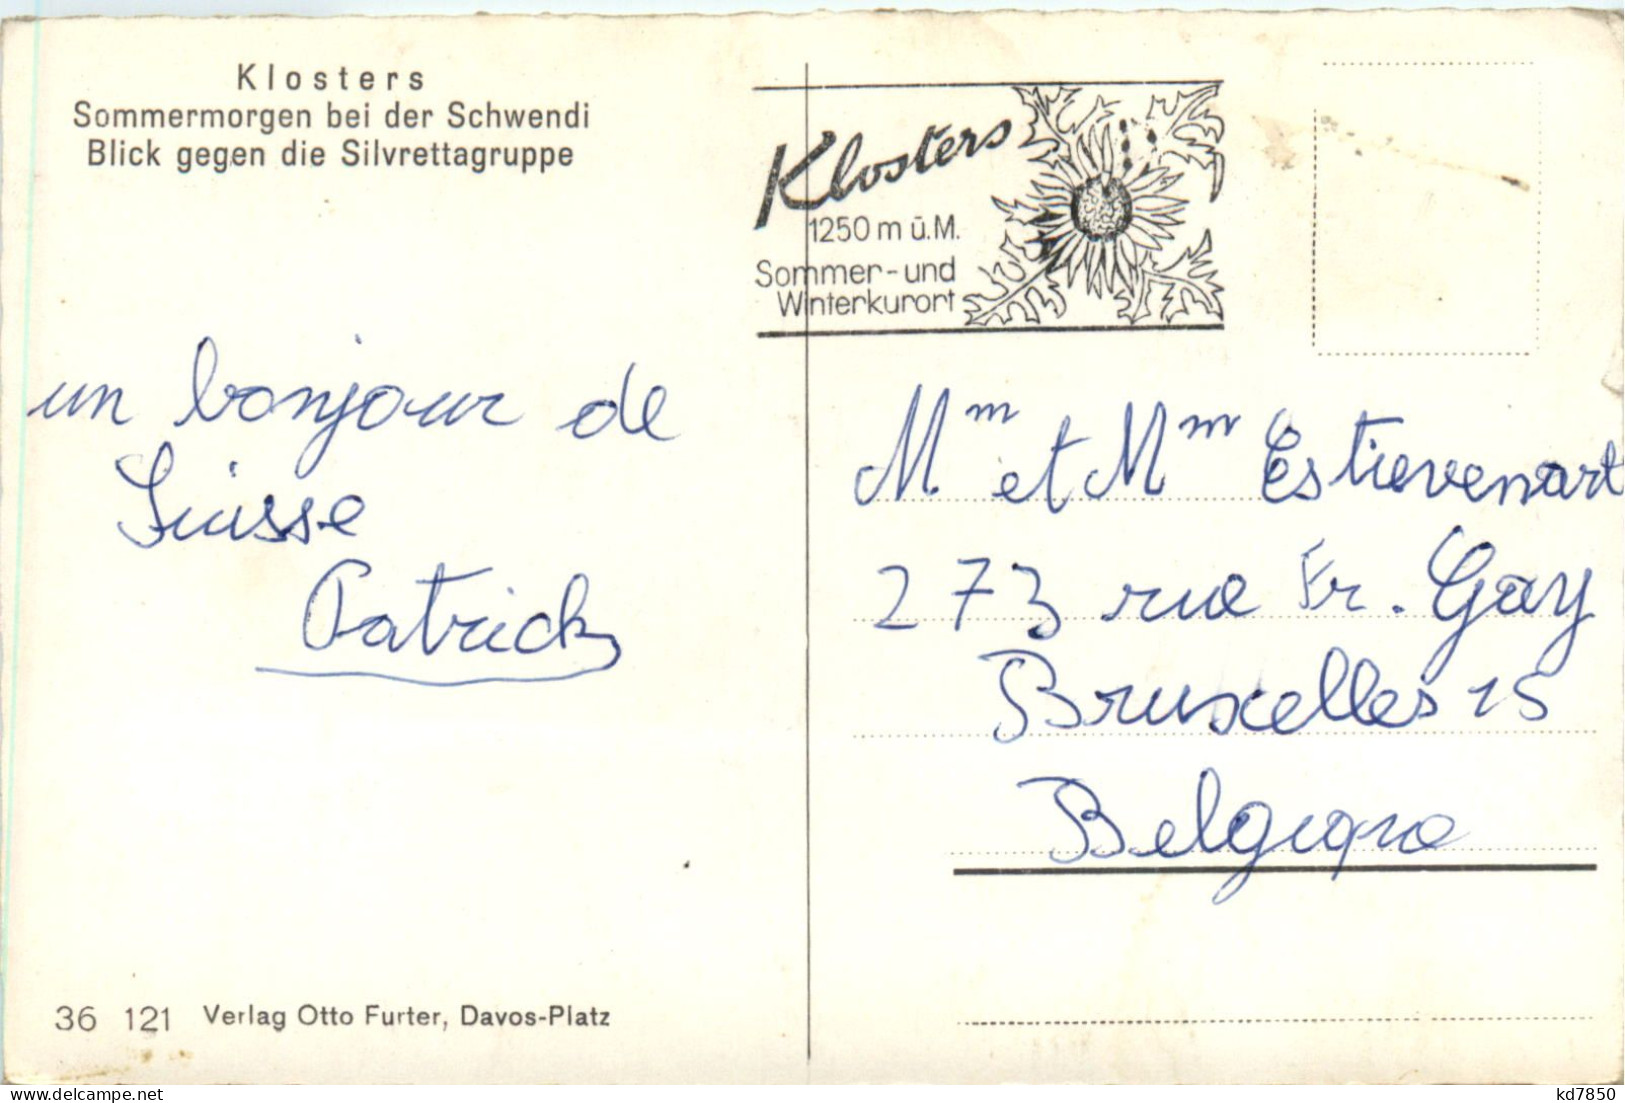 Klosters
Sommermorgen bei der Schwendi
Blick gegen die Silvrettagruppe
Klosters
1250 m ü.M.
Sommer- und
Winterkurort
un bonjour de
Suisse
Patrick
Mm et Mm Estievenart
273 rue Fr. Gay
Bruxelles 15
Belgique
36 121 Verlag Otto Furter, Davos-Platz
kd7850